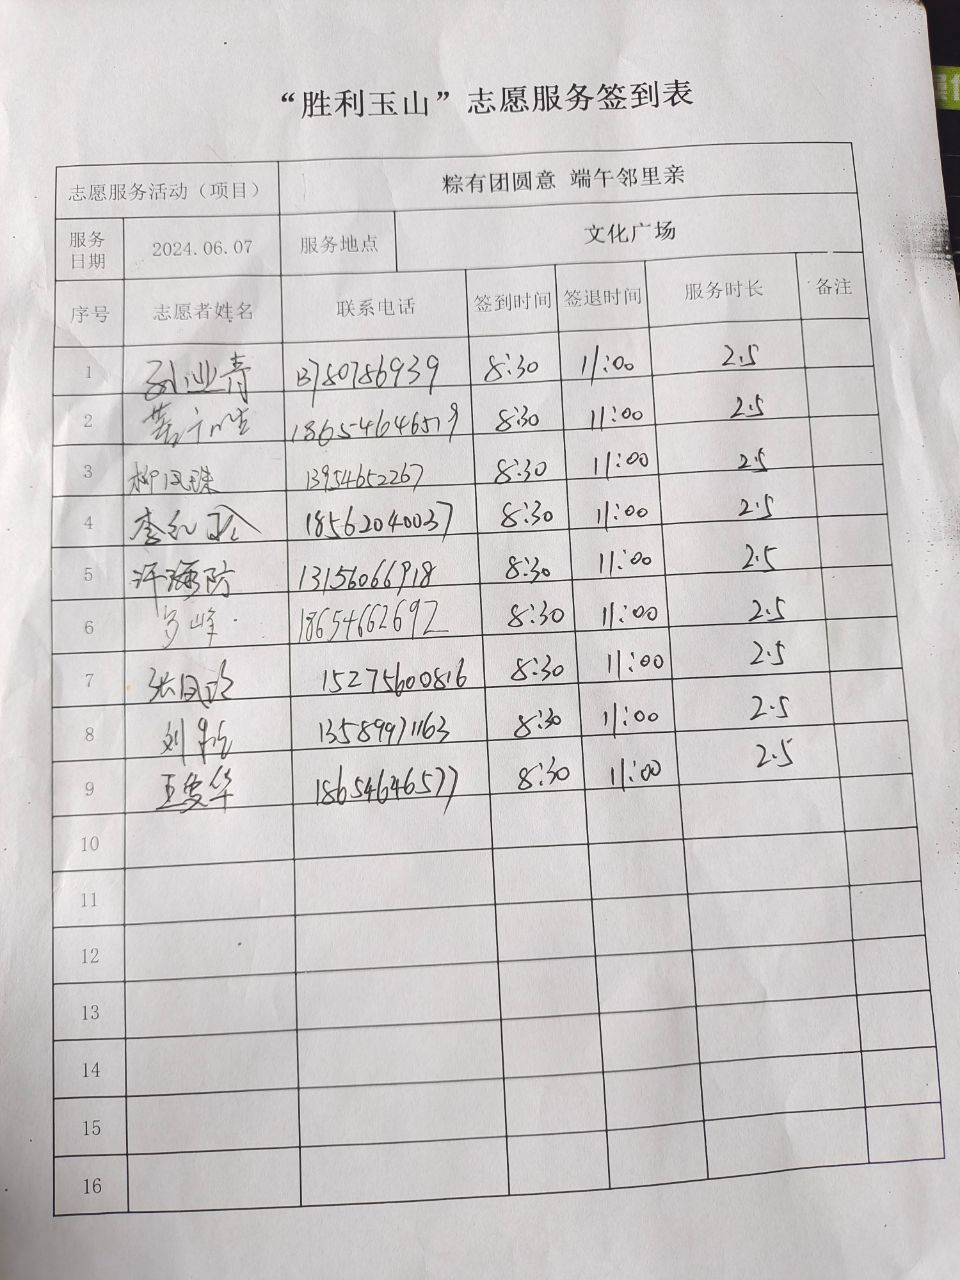 “胜利玉山”志愿服务签到表
志愿服务活动（项目） 粽有团圆意 端午邻里亲
服务日期 2024.06.07 服务地点 文化广场
序号 志愿者姓名 联系电话 签到时间 签退时间 服务时长 备注
1 孙业青 13780786939 8:30 11:00 2.5
2 18654646579 8:30 11:00 2.5
3 柳凤珠 13954652267 8:30 11:00 2.5
4 李红 18562040037 8:30 11:00 2.5
5 许海防 13156066918 8:30 11:00 2.5
6 峰 18654662692 8:30 11:00 2.5
7 张凤玲 15275600816 8:30 11:00 2.5
8 刘 13589971163 8:30 11:00 2.5
9 王爱华 18654646577 8:30 11:00 2.5
10
11
12
13
14
15
16